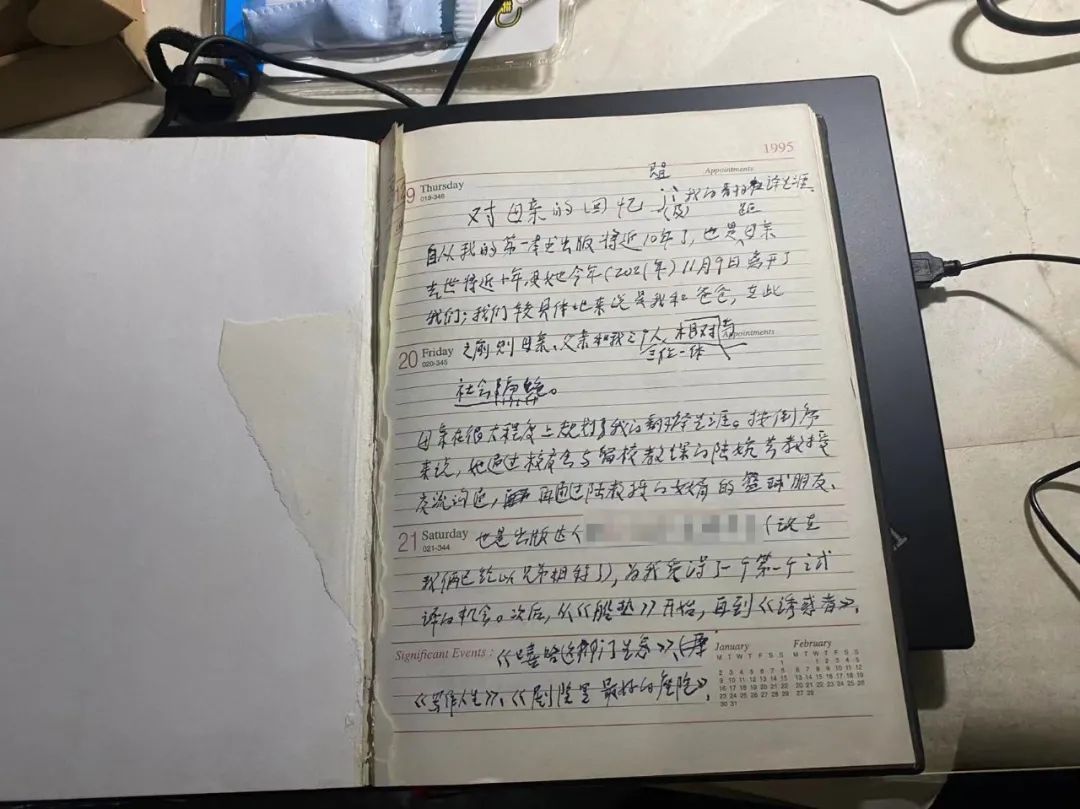 1995
Appointments
19 Thursday
019-346
对母亲的回忆
(及) 我的翻译生涯
自从我的第一本书出版将近10年了,也是距母亲
去世将近十年,她今年(2021年)11月9日离开了
我们;我们较具体地来说是我和爸爸,在此
20 Friday
020-345
之前则母亲、父亲和我三个人,相对与
Appointments
三位一体
社会隔绝。
母亲在很大程度上规划了我的翻译生涯。按倒序
来说,她通过校友会与留校教课的陆教授
交流沟通,再通过陆教授的女婿的篮球朋友、
21 Saturday
021-344
也是出版社 (现在
我俩已经以兄弟相称了),为我获得了一个第一个试
译的机会。次后,从《船垫》开始,再到《诱惑者》、
Significant Events :
《嘻哈这门生意》、
《写作人生》、《剧院里最好的座位》、
January
M T W T F S S
1
2 3 4 5 6 7 8
9 10 11 12 13 14 15
16 17 18 19 20 21 22
23 24 25 26 27 28 29
30 31
February
M T W T F S S
1 2 3 4 5
6 7 8 9 10 11 12
13 14 15 16 17 18 19
20 21 22 23 24 25 26
27 28